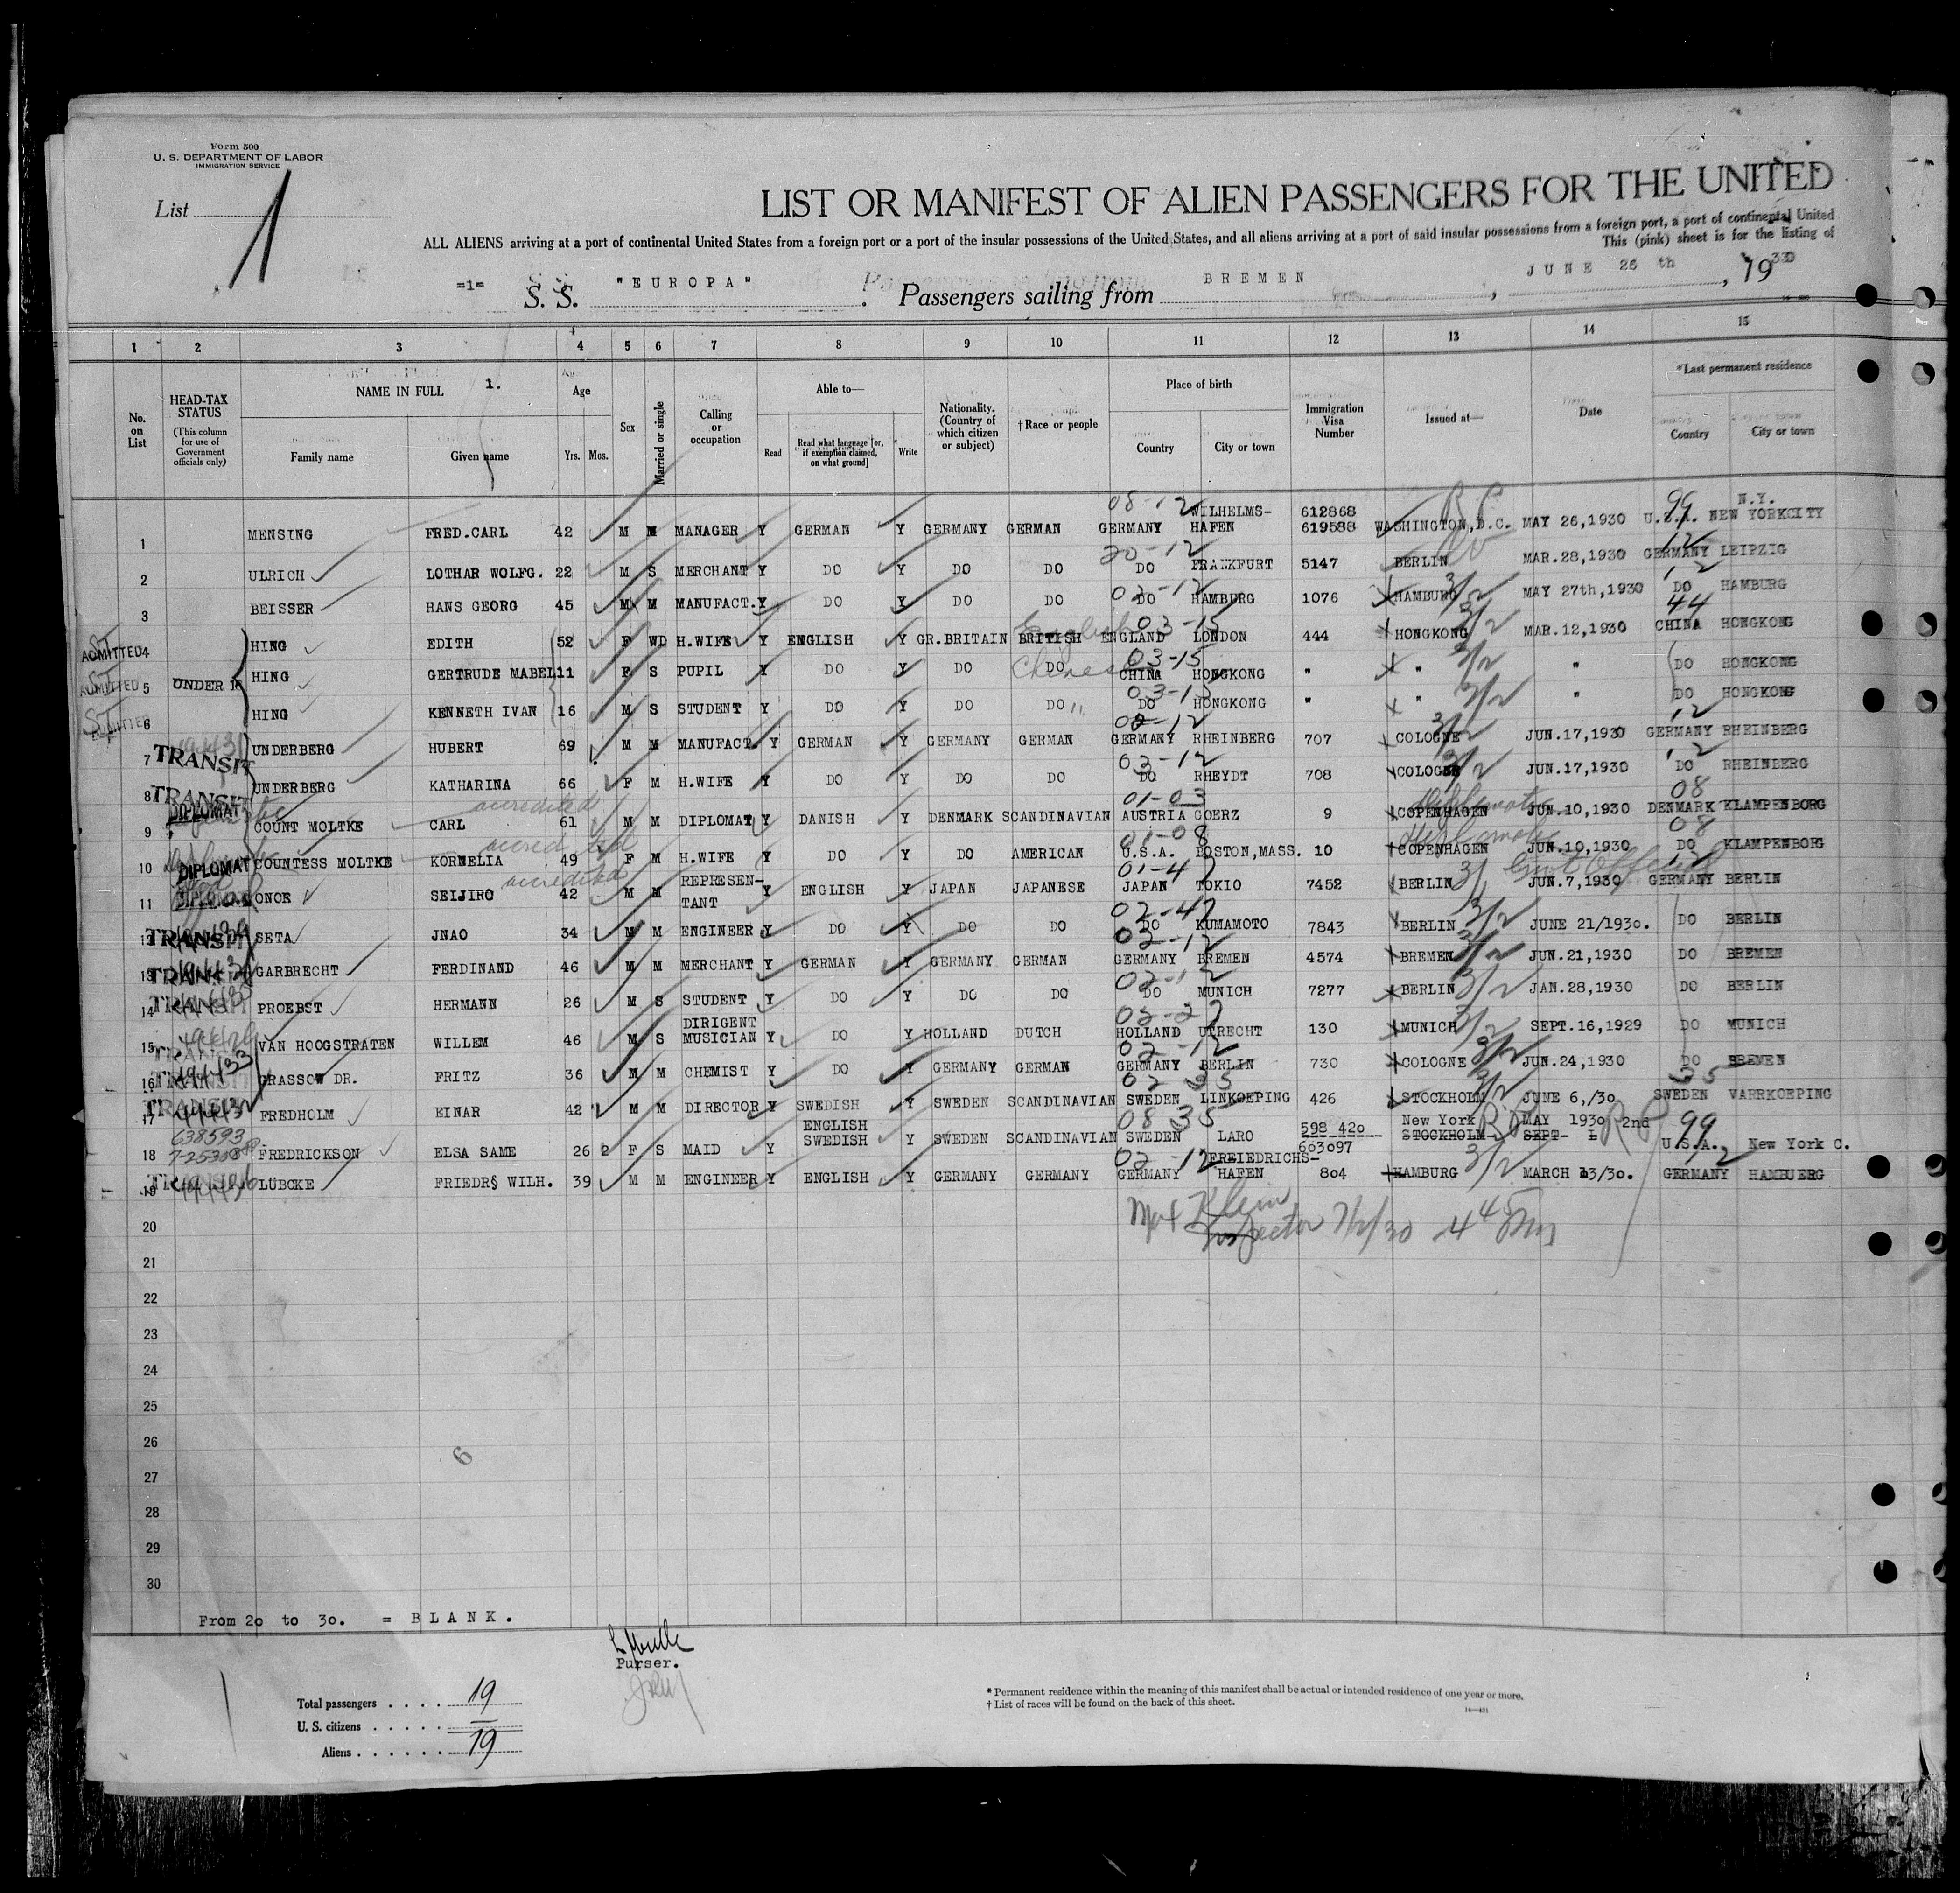 Form 500
U. S. DEPARTMENT OF LABOR
IMMIGRATION SERVICE
List 1
LIST OR MANIFEST OF ALIEN PASSENGERS FOR THE UNITED
ALL ALIENS arriving at a port of continental United States from a foreign port or a port of the insular possessions of the United States, and all aliens arriving at a port of said insular possessions from a foreign port, a port of continental United
This (pink) sheet is for the listing of
=1= S. S. "EUROPA" Passengers sailing from BREMEN, JUNE 26 th, 1930
1 2 3 4 5 6 7 8 9 10 11 12 13 14 15
No. on List
HEAD-TAX STATUS (This column for use of Government officials only)
NAME IN FULL 1.
Family name Given name
Age Yrs. Mos.
Sex
Married or single
Calling or occupation
Able to—
Read Read what language [or, if exemption claimed, on what ground] Write
Nationality. (Country of which citizen or subject)
†Race or people
Place of birth
Country City or town
Immigration Visa Number
Issued at—
Date
*Last permanent residence
Country City or town
1 MENSING FRED.CARL 42 M M MANAGER Y GERMAN Y GERMANY GERMAN 08-12 GERMANY WILHELMS-HAFEN 612868 619588 WASHINGTON,D.C. MAY 26,1930 99 U.S.A. N.Y. NEW YORKCITY
2 ULRICH LOTHAR WOLFG. 22 M S MERCHANT Y DO Y DO DO 20-12 DO FRANKFURT 5147 BERLIN MAR.28,1930 12 GERMANY LEIPZIG
3 BEISSER HANS GEORG 45 M M MANUFACT. Y DO Y DO DO 02-12 DO HAMBURG 1076 HAMBURG 3/2 MAY 27th,1930 12 DO HAMBURG
ADMITTED 4 HING EDITH 52 F WD H.WIFE Y ENGLISH Y GR.BRITAIN BRITISH English 03-15 ENGLAND LONDON 444 HONGKONG 3/2 MAR.12,1930 44 CHINA HONGKONG
ADMITTED 5 UNDER 16 HING GERTRUDE MABEL 11 F S PUPIL Y DO Y DO DO Chinese 03-15 CHINA HONGKONG " " 3/2 " DO HONGKONG
ADMITTED 6 HING KENNETH IVAN 16 M S STUDENT Y DO Y DO DO " 03-15 DO HONGKONG " " 3/2 " DO HONGKONG
7 TRANSIT UNDERBERG HUBERT 69 M M MANUFACT. Y GERMAN Y GERMANY GERMAN 02-12 GERMANY RHEINBERG 707 COLOGNE 3/2 JUN.17,1930 12 GERMANY RHEINBERG
8 TRANSIT UNDERBERG KATHARINA 66 F M H.WIFE Y DO Y DO DO 02-12 DO RHEYDT 708 COLOGNE 3/2 JUN.17,1930 12 DO RHEINBERG
9 DIPLOMAT COUNT MOLTKE CARL accredited 61 M M DIPLOMAT Y DANISH Y DENMARK SCANDINAVIAN 01-03 AUSTRIA GOERZ 9 COPENHAGEN Diplomat JUN.10,1930 08 DENMARK KLAMPENBORG
10 DIPLOMAT COUNTESS MOLTKE KORNELIA accredited 49 F M H.WIFE Y DO Y DO AMERICAN 01-08 U.S.A. BOSTON,MASS. 10 COPENHAGEN Diplomat JUN.10,1930 08 DO KLAMPENBORG
11 DIPLOMAT ONOE SEIJIRO accredited 42 M M REPRESEN-TANT Y ENGLISH Y JAPAN JAPANESE 01-47 JAPAN TOKIO 7452 BERLIN Govt Official JUN.7,1930 12 GERMANY BERLIN
12 TRANSIT SETA JNAO 34 M M ENGINEER Y DO Y DO DO 02-47 DO KUMAMOTO 7843 BERLIN 3/2 JUNE 21/1930. DO BERLIN
13 TRANSIT GARBRECHT FERDINAND 46 M M MERCHANT Y GERMAN Y GERMANY GERMAN 02-12 GERMANY BREMEN 4574 BREMEN 3/2 JUN.21,1930 DO BREMEN
14 TRANSIT PROEBST HERMANN 26 M S STUDENT Y DO Y DO DO 02-12 DO MUNICH 7277 BERLIN 3/2 JAN.28,1930 DO BERLIN
15 TRANSIT VAN HOOGSTRATEN WILLEM 46 M S DIRIGENT MUSICIAN Y DO Y HOLLAND DUTCH 02-27 HOLLAND UTRECHT 130 MUNICH 3/2 SEPT.16,1929 DO MUNICH
16 TRANSIT GRASSOW DR. FRITZ 36 M M CHEMIST Y DO Y GERMANY GERMAN 02-12 GERMANY BERLIN 730 COLOGNE 3/2 JUN.24,1930 DO BREMEN
17 TRANSIT FREDHOLM EINAR 42 M M DIRECTOR Y SWEDISH Y SWEDEN SCANDINAVIAN 02 35 SWEDEN LINKOEPING 426 STOCKHOLM 3/2 JUNE 6,/30 35 SWEDEN VARRKOEPING
18 638593 FREDRICKSON ELSA SAME 26 2 F S MAID Y ENGLISH SWEDISH Y SWEDEN SCANDINAVIAN 08 35 SWEDEN LARO 598 420 603097 New York STOCKHOLM RP MAY 1930 2nd SEPT 1 RP 99 U.S.A. New York C.
19 TRANSIT LÜBCKE FRIEDR§ WILH. 39 M M ENGINEER Y ENGLISH Y GERMANY GERMANY 02-12 GERMANY FREIEDRICHS-HAFEN 804 HAMBURG 3/2 MARCH 13/30. 12 GERMANY HAMBUERG
20 Klein
Inspector 7/2/30 4 45 PM
21
22
23
24
25
26 6
27
28
29
30
From 20 to 30. = BLANK.
Purser.
Total passengers . . . . 19
U. S. citizens . . . . .
Aliens . . . . . . 19
* Permanent residence within the meaning of this manifest shall be actual or intended residence of one year or more.
† List of races will be found on the back of this sheet.